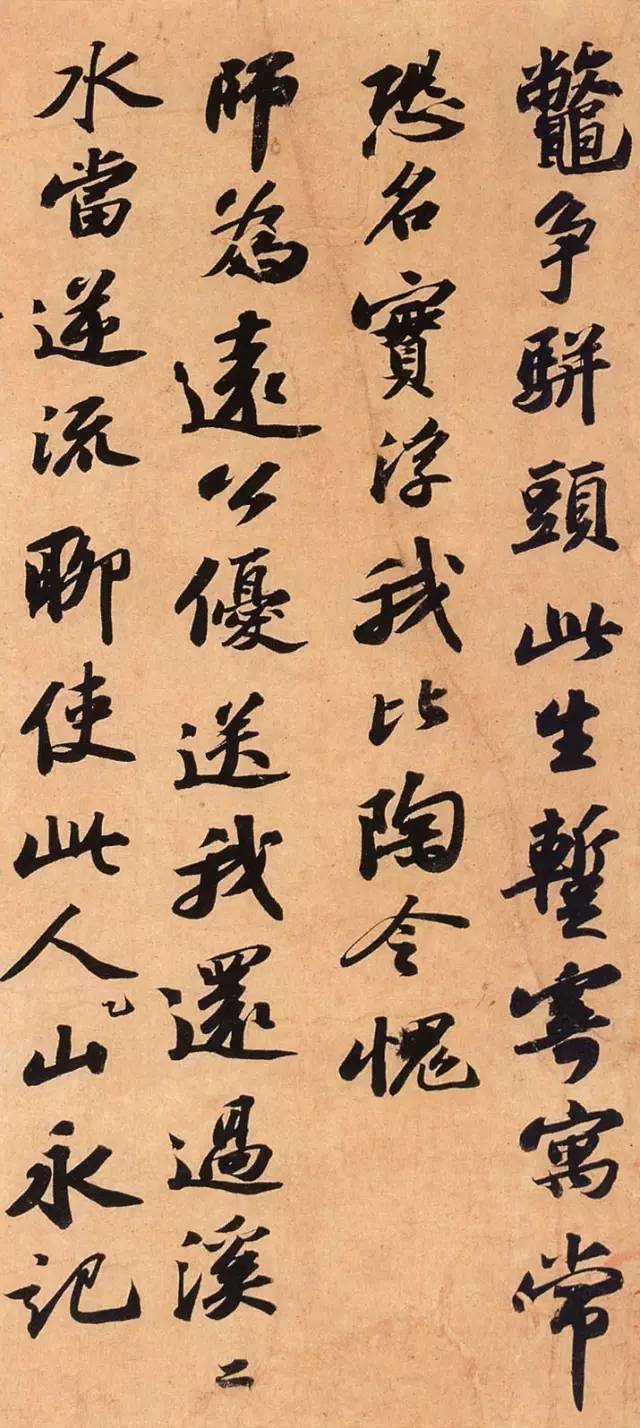 鼈争駢頭此生蹔寄寓常
恐名實浮我比陶令愧
師為遠公優送我還過溪二
水當逆流聊使此人山永記